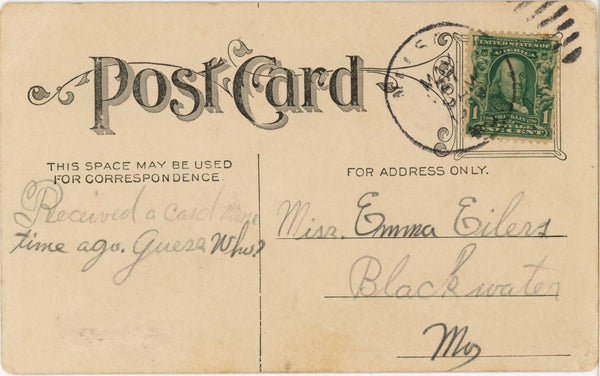 Post Card
MAY
UNITED STATES OF
AMERICA
1 1
POSTAGE
ONE CENT
THIS SPACE MAY BE USED
FOR CORRESPONDENCE.
FOR ADDRESS ONLY.
Received a card some
time ago. Guess Who?
Miss. Emma Eilers
Blackwater
Mo,